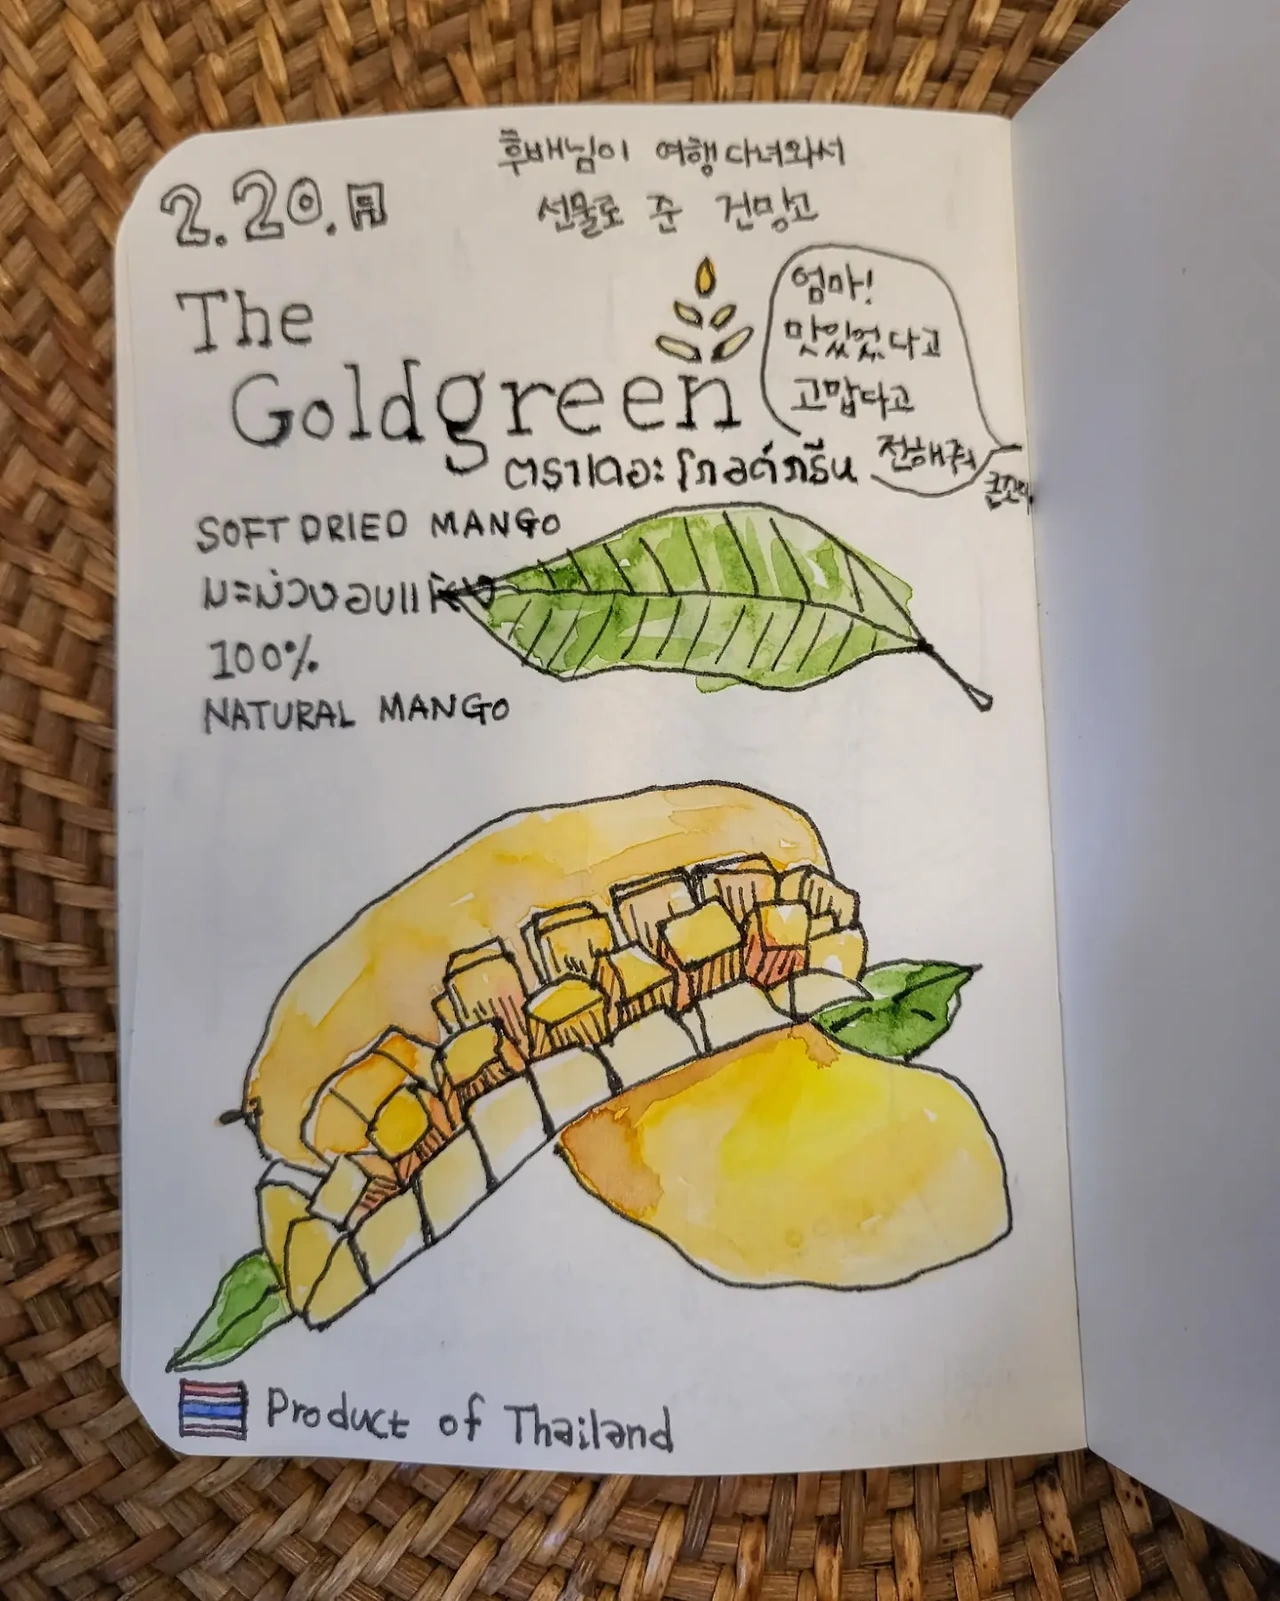 2.20.月
후배님이 여행다녀와서
선물로 준 건망고
The
Goldgreen
ตราเดอะโกลด์กรีน
엄마!
맛있었다고
고맙다고
전해줘
SOFT DRIED MANGO
มะม่วงอบแห้ง
100%
NATURAL MANGO
Product of Thailand